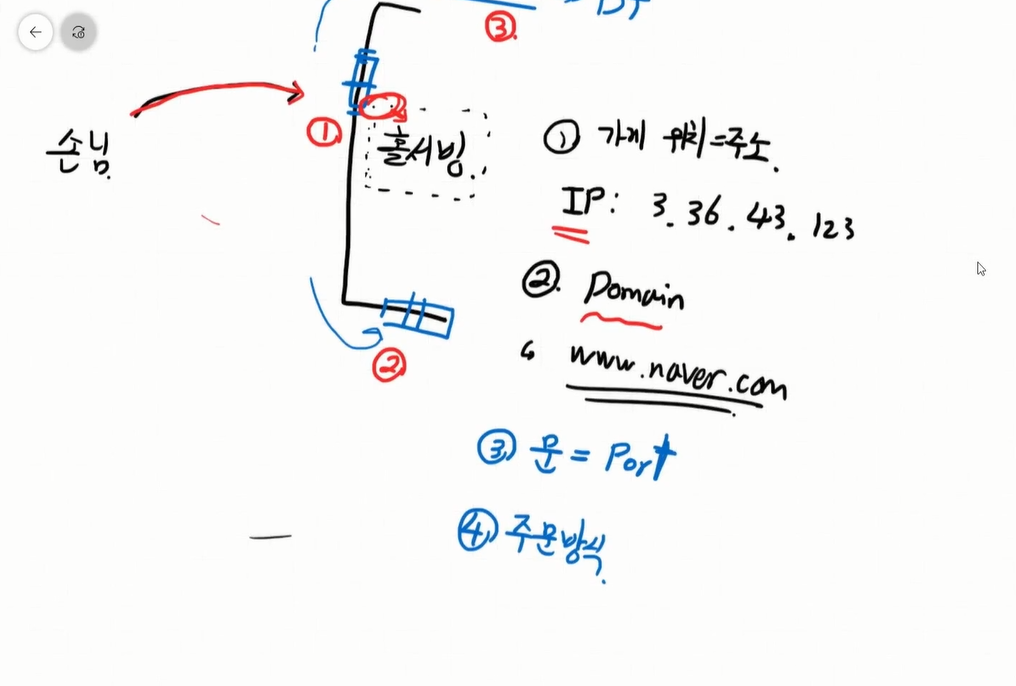 ③.
손님.
①
홀서빙.
① 가게 위치=주소.
IP: 3. 36. 43. 123
②. Domain
www.naver.com
②
③ 문 = Port
④ 주문방식.